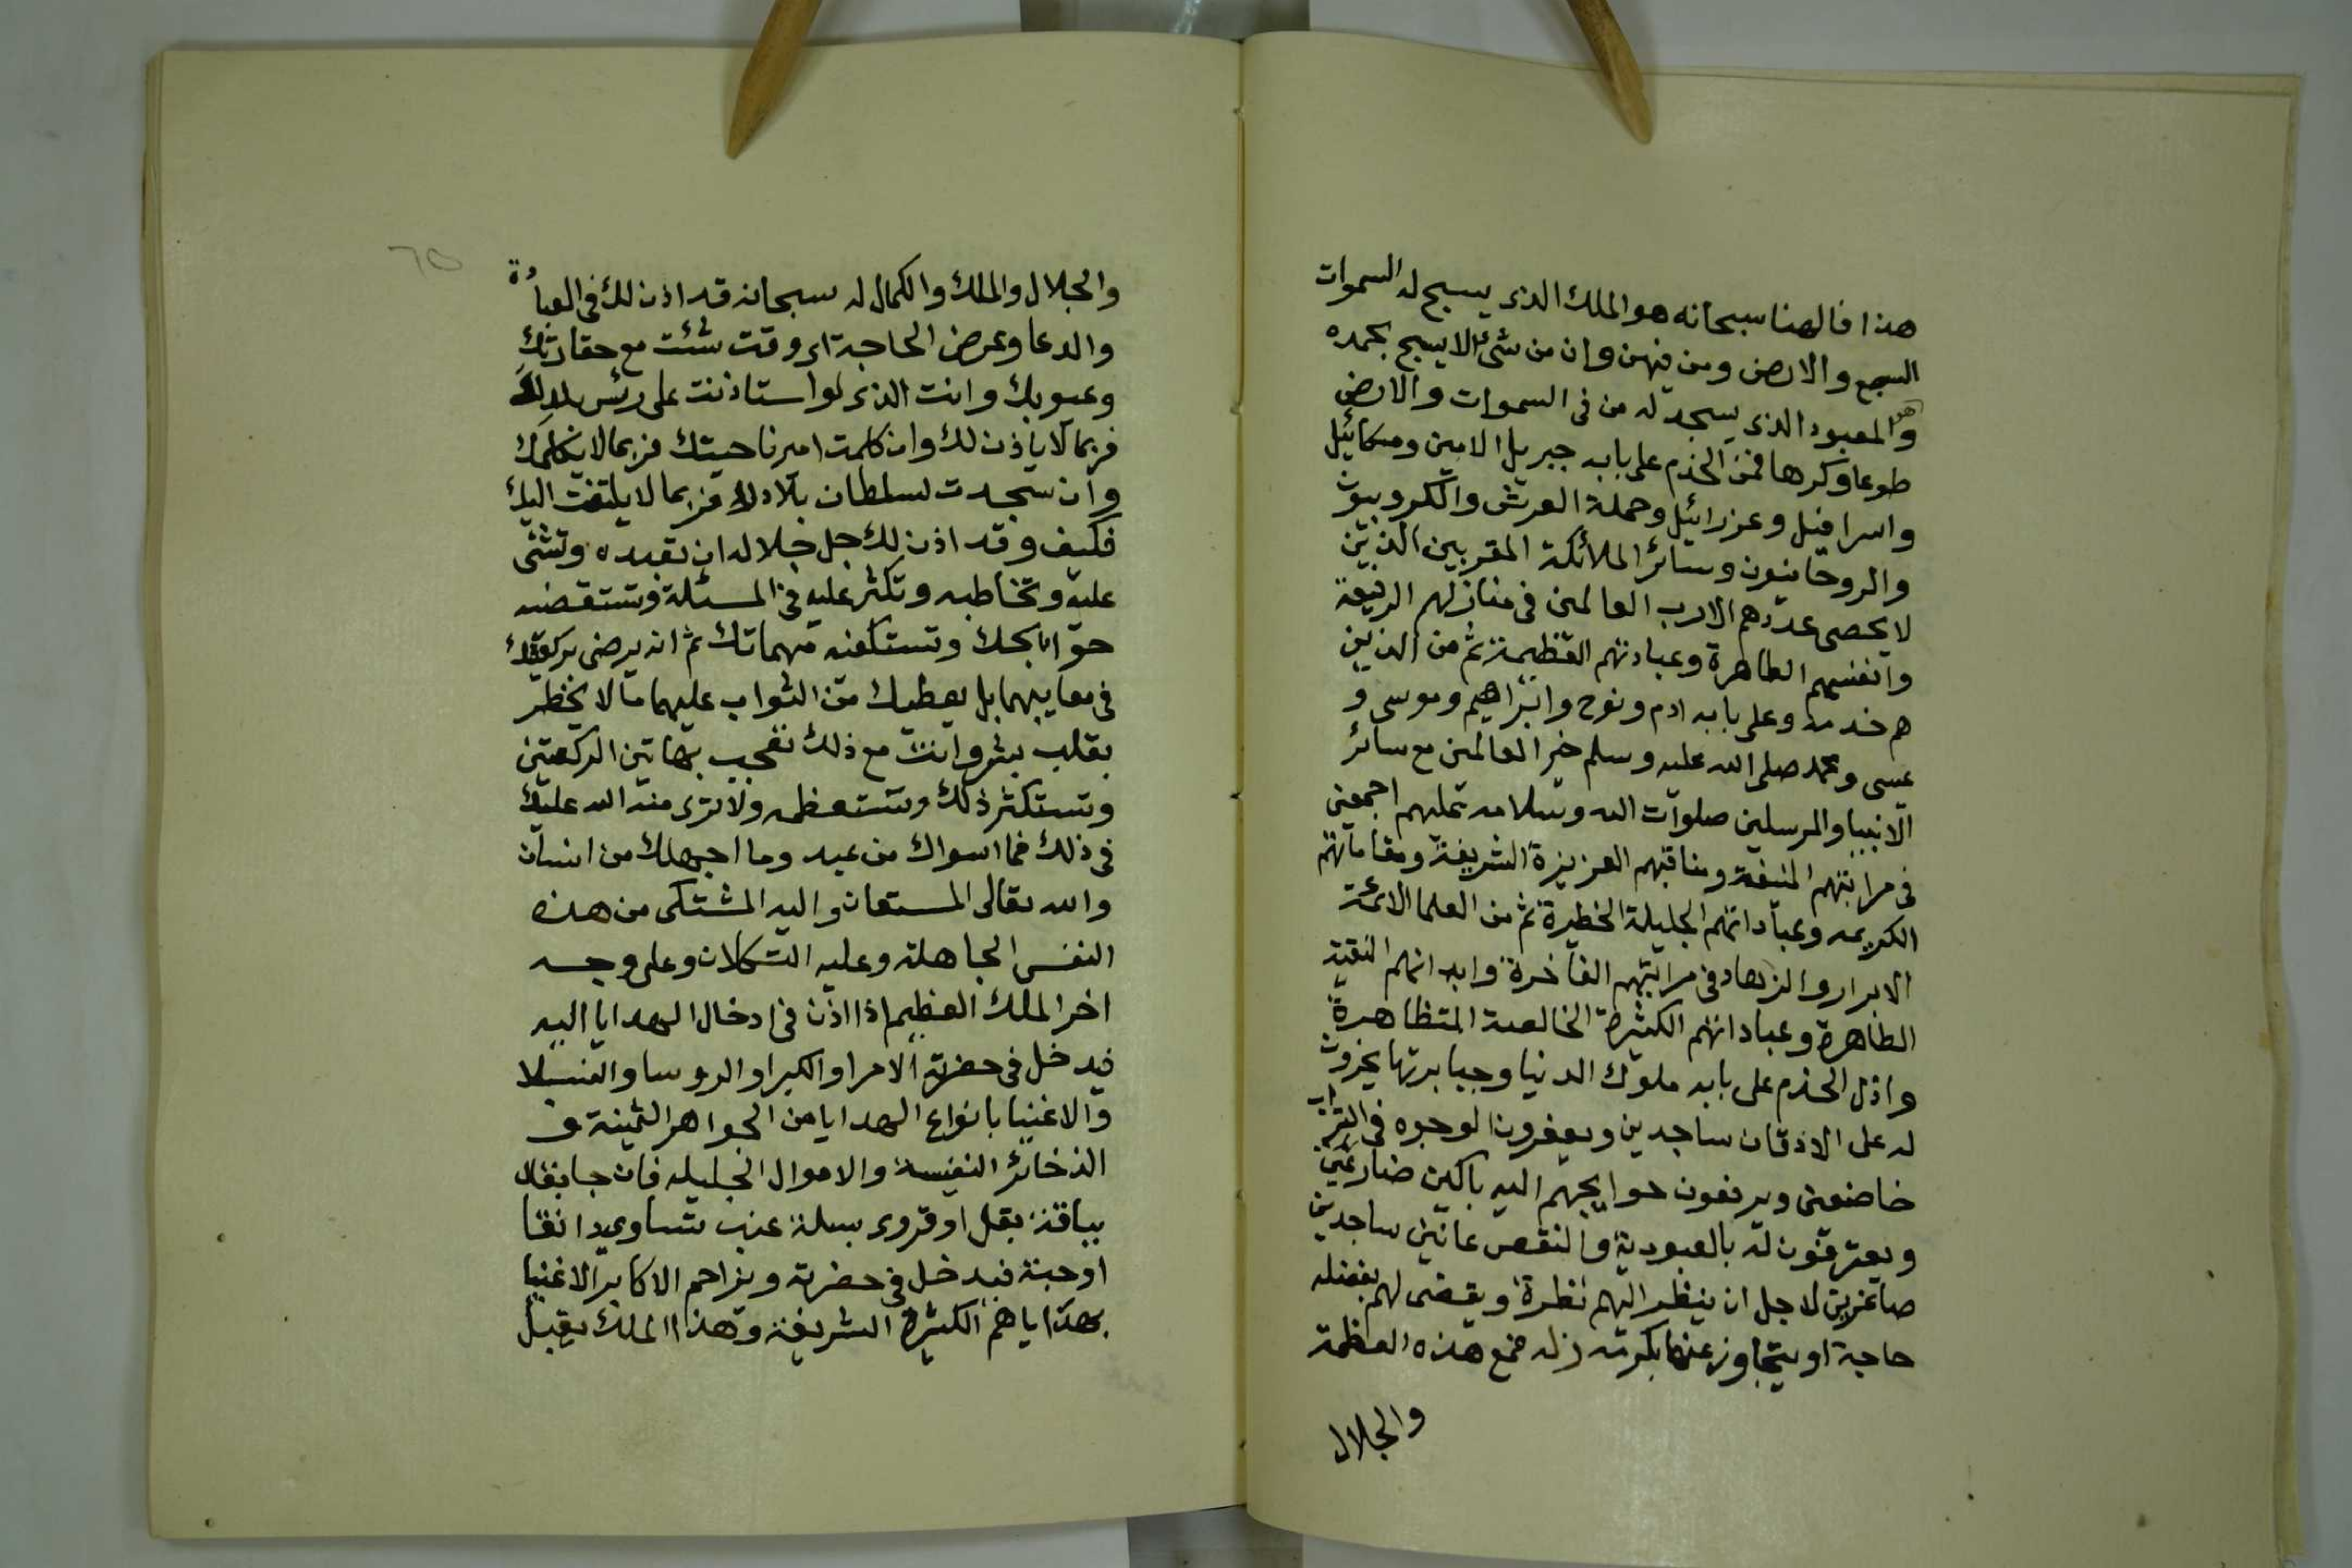 هذا فالهنا سبحانه هو الملك الذى يسبح له السموات
السبع والارض ومن فيهن وان من شئ الا يسبح بحمده
وهو المعبود الذى يسجد له من فى السموات والارض
طوعا وكرها فمن الخدم على بابه جبريل الامين وميكائيل
واسرافيل وعزرائيل وحملة العرش والكروبيون
والروحانيون وسائر الملائكة المقربين الذين
لا يحصى عددهم الا رب العالمين فى منازلهم الرفيعة
وانفسهم الطاهرة وعبادتهم العظيمة ثم من الذين
هم خدمه وعلى بابه ادم ونوح وابراهيم وموسى و
عيسى ومحمد صلى الله عليه وسلم خير العالمين مع سائر
الانبيا والمرسلين صلوات الله وسلامه عليهم اجمعين
فى مراتبهم المنيفة ومناقبهم العزيزة الشريفة ومقاماتهم
الكريمه وعباداتهم الجليلة الخطيرة ثم من العلما الائمة
الابرار والزهاد فى مراتبهم الفاخرة وابدانهم النقية
الطاهرة وعباداتهم الكثيرة الخالصة المتظاهرة
واذل الخدم على بابه ملوك الدنيا وجبابرتها يخرون
له على الاذقان ساجدين ويعفرون الوجوه فى التراب
خاضعين ويرفعون حوايجهم اليه باكين ضارعين
ويعترفون له بالعبودية والنقص عانين ساجدين
صاغرين لاجل ان ينظر اليهم نظرة ويقضى لهم بفضله
حاجة او يتجاوز عنها بكرمه زله فمع هذه العظمة
والجلال
٦٥
والجلال والملك والكمال له سبحانه قد اذن لك فى العبادة
والدعا وعرض الحاجة اى وقت شئت مع حقارتك
وعيوبك وانت الذى لو استاذنت على رئس بلدك
فربما لا ياذن لك وان كلمت امير ناحيتك فربما لا يكلمك
وان سجدت لسلطان بلادك فربما لا يلتفت اليك
فكيف وقد اذن لك جل جلاله ان تعبده وتثنى
عليه وتخاطبه وتكثر عليه فى المسئلة وتستقضيه
حوايجك وتستكفيه مهماتك ثم انه يرضى بركعتيك
فى معايبهما بل يعطيك من الثواب عليهما ما لا يخطر
بقلب بشر وانت مع ذلك تعجب بهاتين الركعتين
وتستكثر ذلك وتستعظمه ولا ترى منة الله عليك
فى ذلك فما اسواك من عبد وما اجهلك من انسان
والله تعالى المستعان واليه المشتكى من هذه
النفس الجاهلة وعليه التكلان وعلى وجه
اخر الملك العظيم اذا اذن فى ادخال الهدايا اليه
فيدخل فى حضرته الامرا والكبرا والروسا والنبلا
والاغنيا بانواع الهدايا من الجواهر الثمينة و
الذخائر النفيسة والاموال الجليله فان جا بقال
بباقة بقل او قروى بسلة عنب تساوى دانقا
او حبة فيدخل فى حضرته ويزاحم الاكابر الاغنيا
بهداياهم الكثيرة الشريفة وهذا الملك يقبل